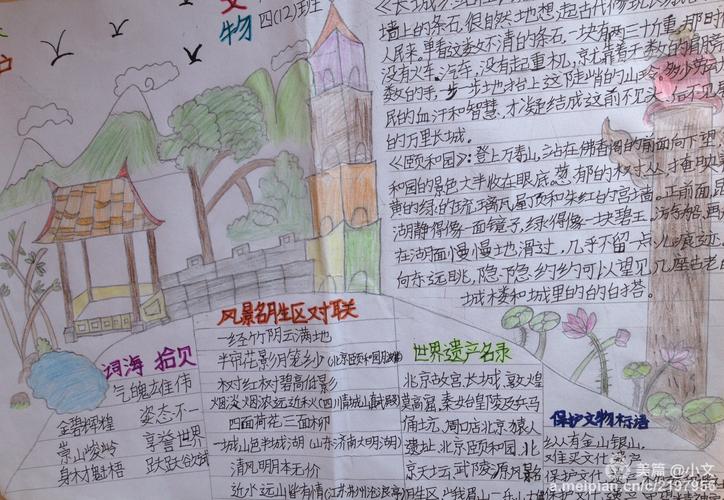 文
物
四(12)班
护
《长城》
墙上的条石,很自然地想起古代修筑长城
人民来。单看这数不清的条石,一块有两三千斤重,那时
没有火车、汽车,没有起重机,就靠着无数的肩膀
数的手,一步一步地抬上这陡峭的山岭。多少劳动
民的血汗和智慧,才凝结成这前不见头、后不见尾
的万里长城。
《颐和园》:登上万寿山,站在佛香阁的前面向下望,
和园的景色大半收在眼底。葱郁的树丛
黄的绿的琉璃瓦屋顶和朱红的宫墙。正前面,
湖静得像一面镜子,绿得像一块碧玉。游船、画
在湖面慢慢地滑过,几乎不留一点儿痕迹。
向东远眺,隐隐约约可以望见几座古老的
城楼和城里的的白塔。
风景名胜区对联
一径竹阴云满地
半帘花影月笼纱(北京颐和园月
树红树碧高低影
烟淡烟浓远近秋(四川青城山真武殿
四面荷花三面柳
一城山色半城湖(山东济南大明湖)
清风明月本无价
近水远山皆有情(江苏苏州沧浪亭
词海拾贝
气魄雄伟
金碧辉煌 姿态不一
崇山峻岭 享誉世界
身材魁梧 跃跃欲试
世界遗产名录
北京故宫、长城、敦煌
莫高窟、秦始皇陵及兵马
俑坑、周口店北京猿人
遗址、北京颐和园、北
京天坛、武陵源风景
保护文物标语
美篇 @小文
a.meipian.cn/c/2197956